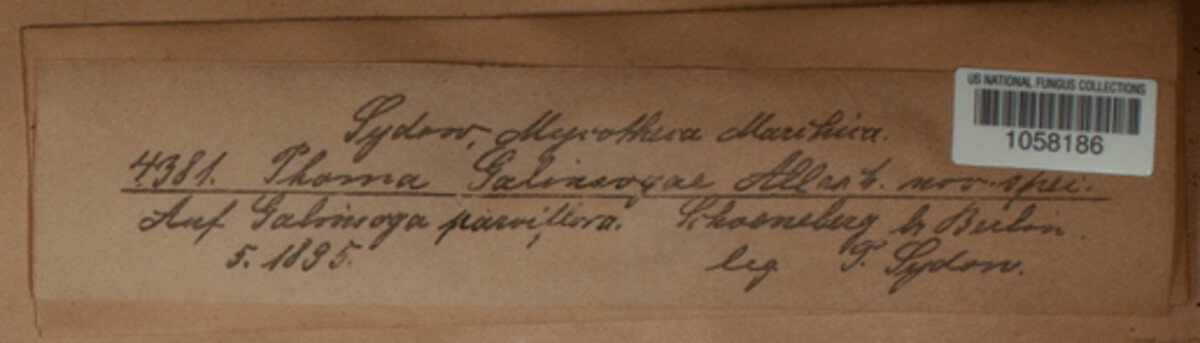 US NATIONAL FUNGUS COLLECTIONS
1058186
Sydow, Mycotheca Marchica.
4381. Phoma Galinsogae Allesch. nov. spei.
Auf Galinsoga parviflora. Schoeneberg b. Berlin.
5. 1895. leg. P. Sydow.